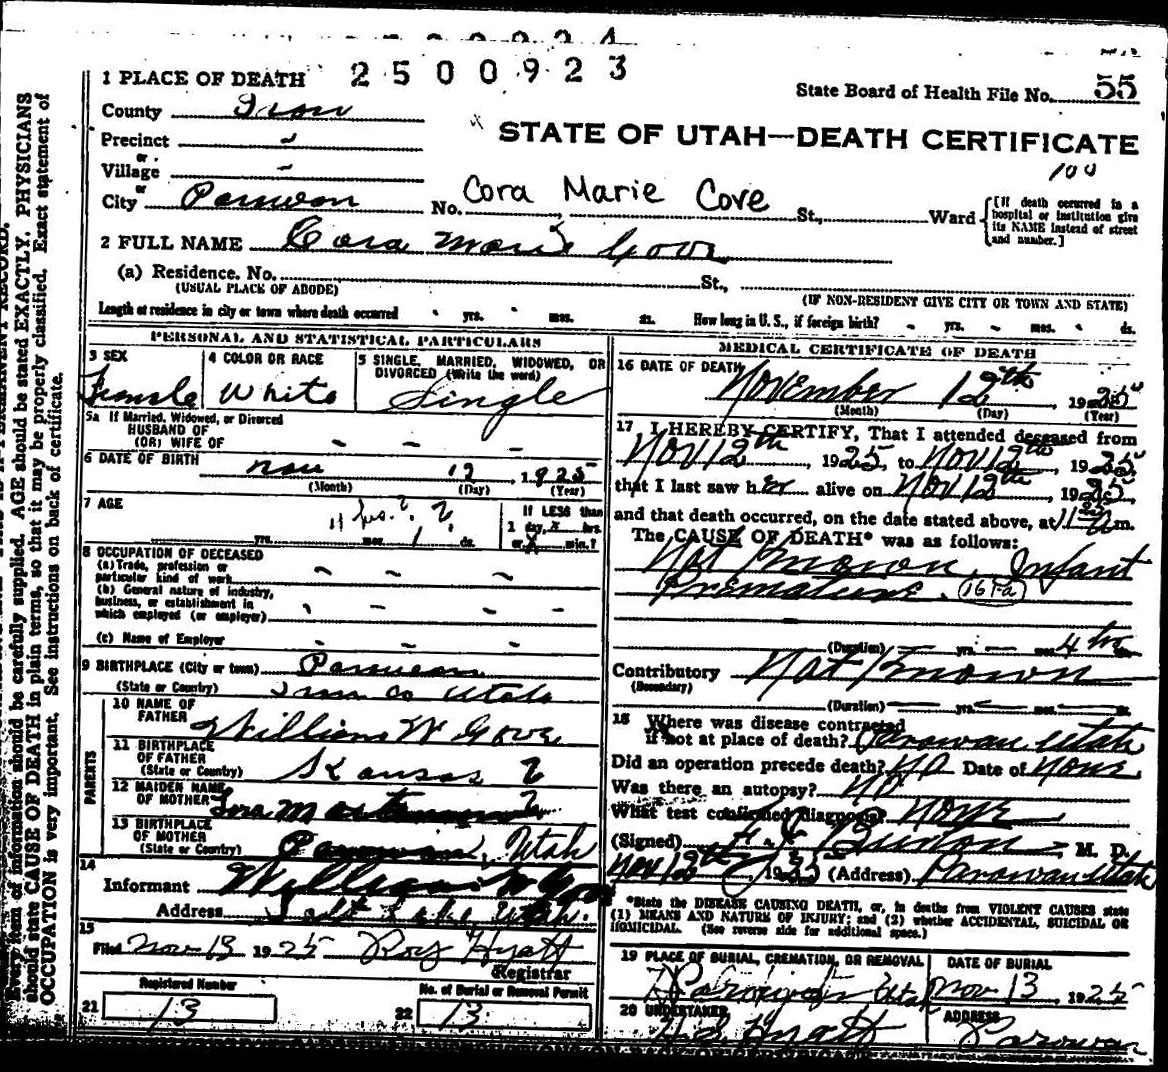 2500923
1 PLACE OF DEATH
State Board of Health File No. 55
County Iron
STATE OF UTAH—DEATH CERTIFICATE
Precinct -
or
Village -
100
or
City Parowan No. Cora Marie Cove St., Ward [If death occurred in a hospital or institution give its NAME instead of street and number.]
2 FULL NAME Cora Marie Gove
(a) Residence. No. St.,
(USUAL PLACE OF ABODE) (IF NON-RESIDENT GIVE CITY OR TOWN AND STATE)
Length of residence in city or town where death occurred - yrs. - mos. ds. How long in U. S., if foreign birth? - yrs. - mos. - ds.
PERSONAL AND STATISTICAL PARTICULARS
3 SEX
Female
4 COLOR OR RACE
White
5 SINGLE, MARRIED, WIDOWED, OR
DIVORCED (Write the word)
Single
5a If Married, Widowed, or Divorced
HUSBAND OF
(OR) WIFE OF - - -
6 DATE OF BIRTH Nov 12, 1925
(Month) (Day) (Year)
7 AGE
11 hrs. ?
yrs. mos. ds.
If LESS than
1 day, hrs.
or min.?
8 OCCUPATION OF DECEASED
(a) Trade, profession or
particular kind of work - - -
(b) General nature of industry,
business, or establishment in
which employed (or employer) - - -
(c) Name of Employer - - -
9 BIRTHPLACE (City or town) Parowan
(State or Country) Iron Co Utah
PARENTS
10 NAME OF
FATHER William W Gove
11 BIRTHPLACE
OF FATHER
(State or Country) Kansas ?
12 MAIDEN NAME
OF MOTHER
13 BIRTHPLACE
OF MOTHER
(State or Country) Parowan, Utah
14
Informant William W Gove
Address Salt Lake, Utah.
15
Filed Nov 13 1925 Roy Hyatt
Registrar
Registered Number
21 13
No. of Burial or Removal Permit
22 13
MEDICAL CERTIFICATE OF DEATH
16 DATE OF DEATH November 12th 1925
(Month) (Day) (Year)
17 I HEREBY CERTIFY, That I attended deceased from
Nov 12th, 1925, to Nov 12th, 1925,
that I last saw her alive on Nov 12th, 1925,
and that death occurred, on the date stated above, at m.
The CAUSE OF DEATH* was as follows:
Not Known, Infant
Premature.
(Duration) — yrs. — mos. 4 hrs
Contributory Not Known
(Secondary)
(Duration) — yrs. — mos. — ds.
18 Where was disease contracted
if not at place of death? Parowan Utah
Did an operation precede death? No Date of None
Was there an autopsy? No
What test confirmed diagnosis? None
(Signed) Burton, M. D.
Nov 12th, 1925 (Address) Parowan Utah
*State the DISEASE CAUSING DEATH, or, in deaths from VIOLENT CAUSES state
(1) MEANS AND NATURE OF INJURY; and (2) whether ACCIDENTAL, SUICIDAL OR
HOMICIDAL. (See reverse side for additional space.)
19 PLACE OF BURIAL, CREMATION, OR REMOVAL
Parowan Utah
DATE OF BURIAL
Nov 13, 1925
20 UNDERTAKER
Hyatt
ADDRESS
Parowan
Every item of information should be carefully supplied. AGE should be stated EXACTLY. PHYSICIANS
should state CAUSE OF DEATH in plain terms, so that it may be properly classified. Exact statement of
OCCUPATION is very important. See instructions on back of certificate.